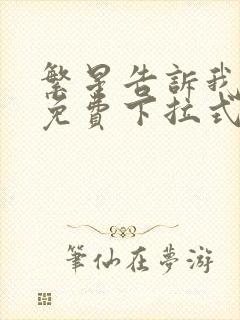 繁星告訴我
免費下拉式
筆仙在夢游